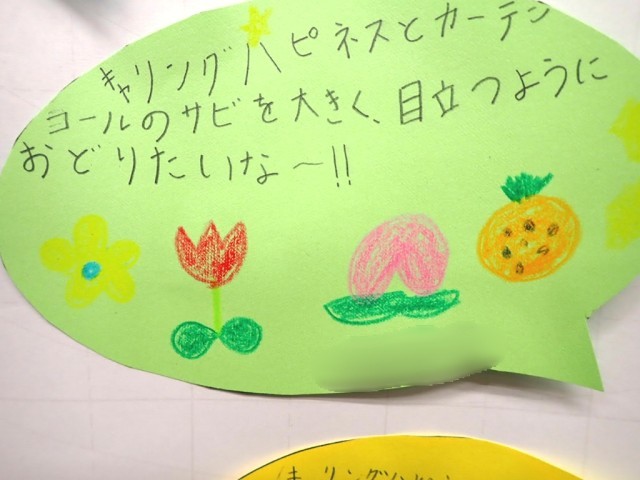 キャリングハピネスとカーテン
コールのサビを大きく、目立つように
おどりたいな〜!!